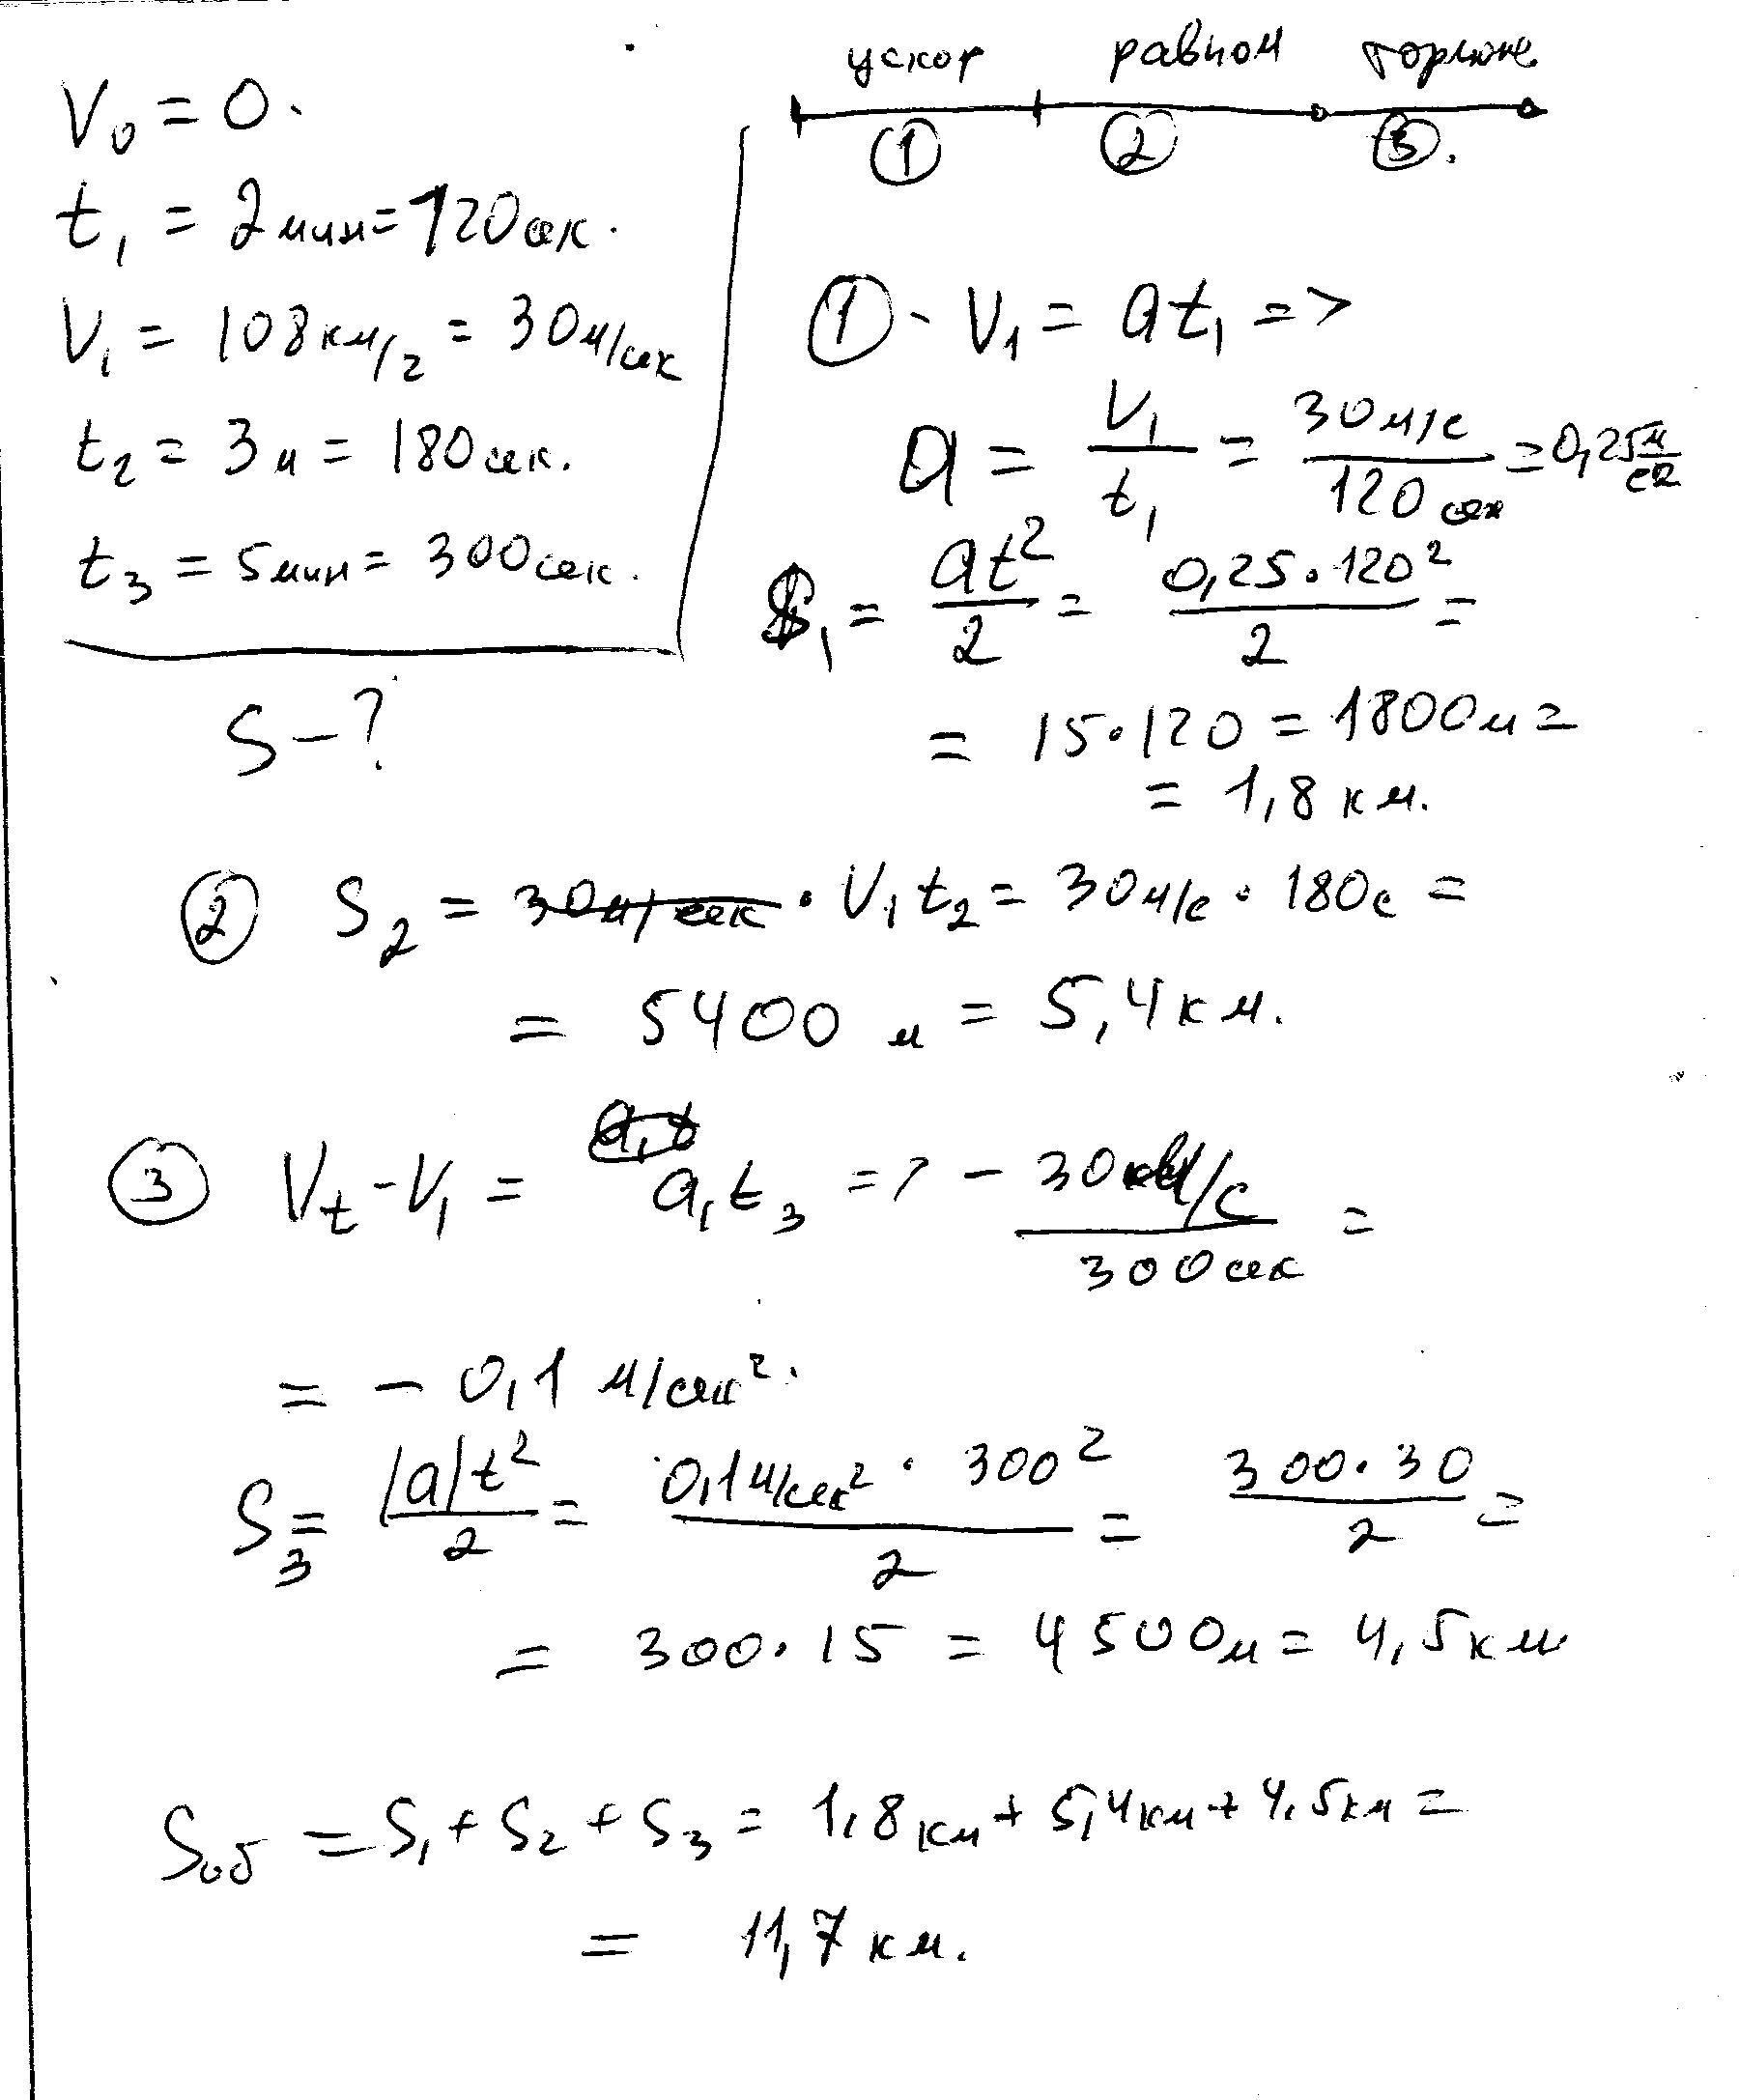 V₀ = 0.
t₁ = 2 мин = 120 сек.
V₁ = 108 км/г = 30 м/сек
t₂ = 3 м = 180 сек.
t₃ = 5 мин = 300 сек.
S - ?
ускор равном тормож
① ② ③.
① - V₁ = at₁ =>
a = V₁/t₁ = 30 м/с / 120 сек = 0,25 м/с²
S₁ = at²/2 = 0,25 · 120²/2 =
= 15 · 120 = 1800 м =
= 1,8 км.
② S₂ = 30 м/сек · V₁t₂ = 30 м/с · 180 с =
= 5400 м = 5,4 км.
③ Vₜ - V₁ = a₁t₃ => - 30 м/с / 300 сек =
= - 0,1 м/сек².
S₃ = |a|t²/2 = 0,1 м/сек² · 300²/2 = 300 · 30/2 =
= 300 · 15 = 4500 м = 4,5 км
Sоб = S₁ + S₂ + S₃ = 1,8 км + 5,4 км + 4,5 км =
= 11,7 км.